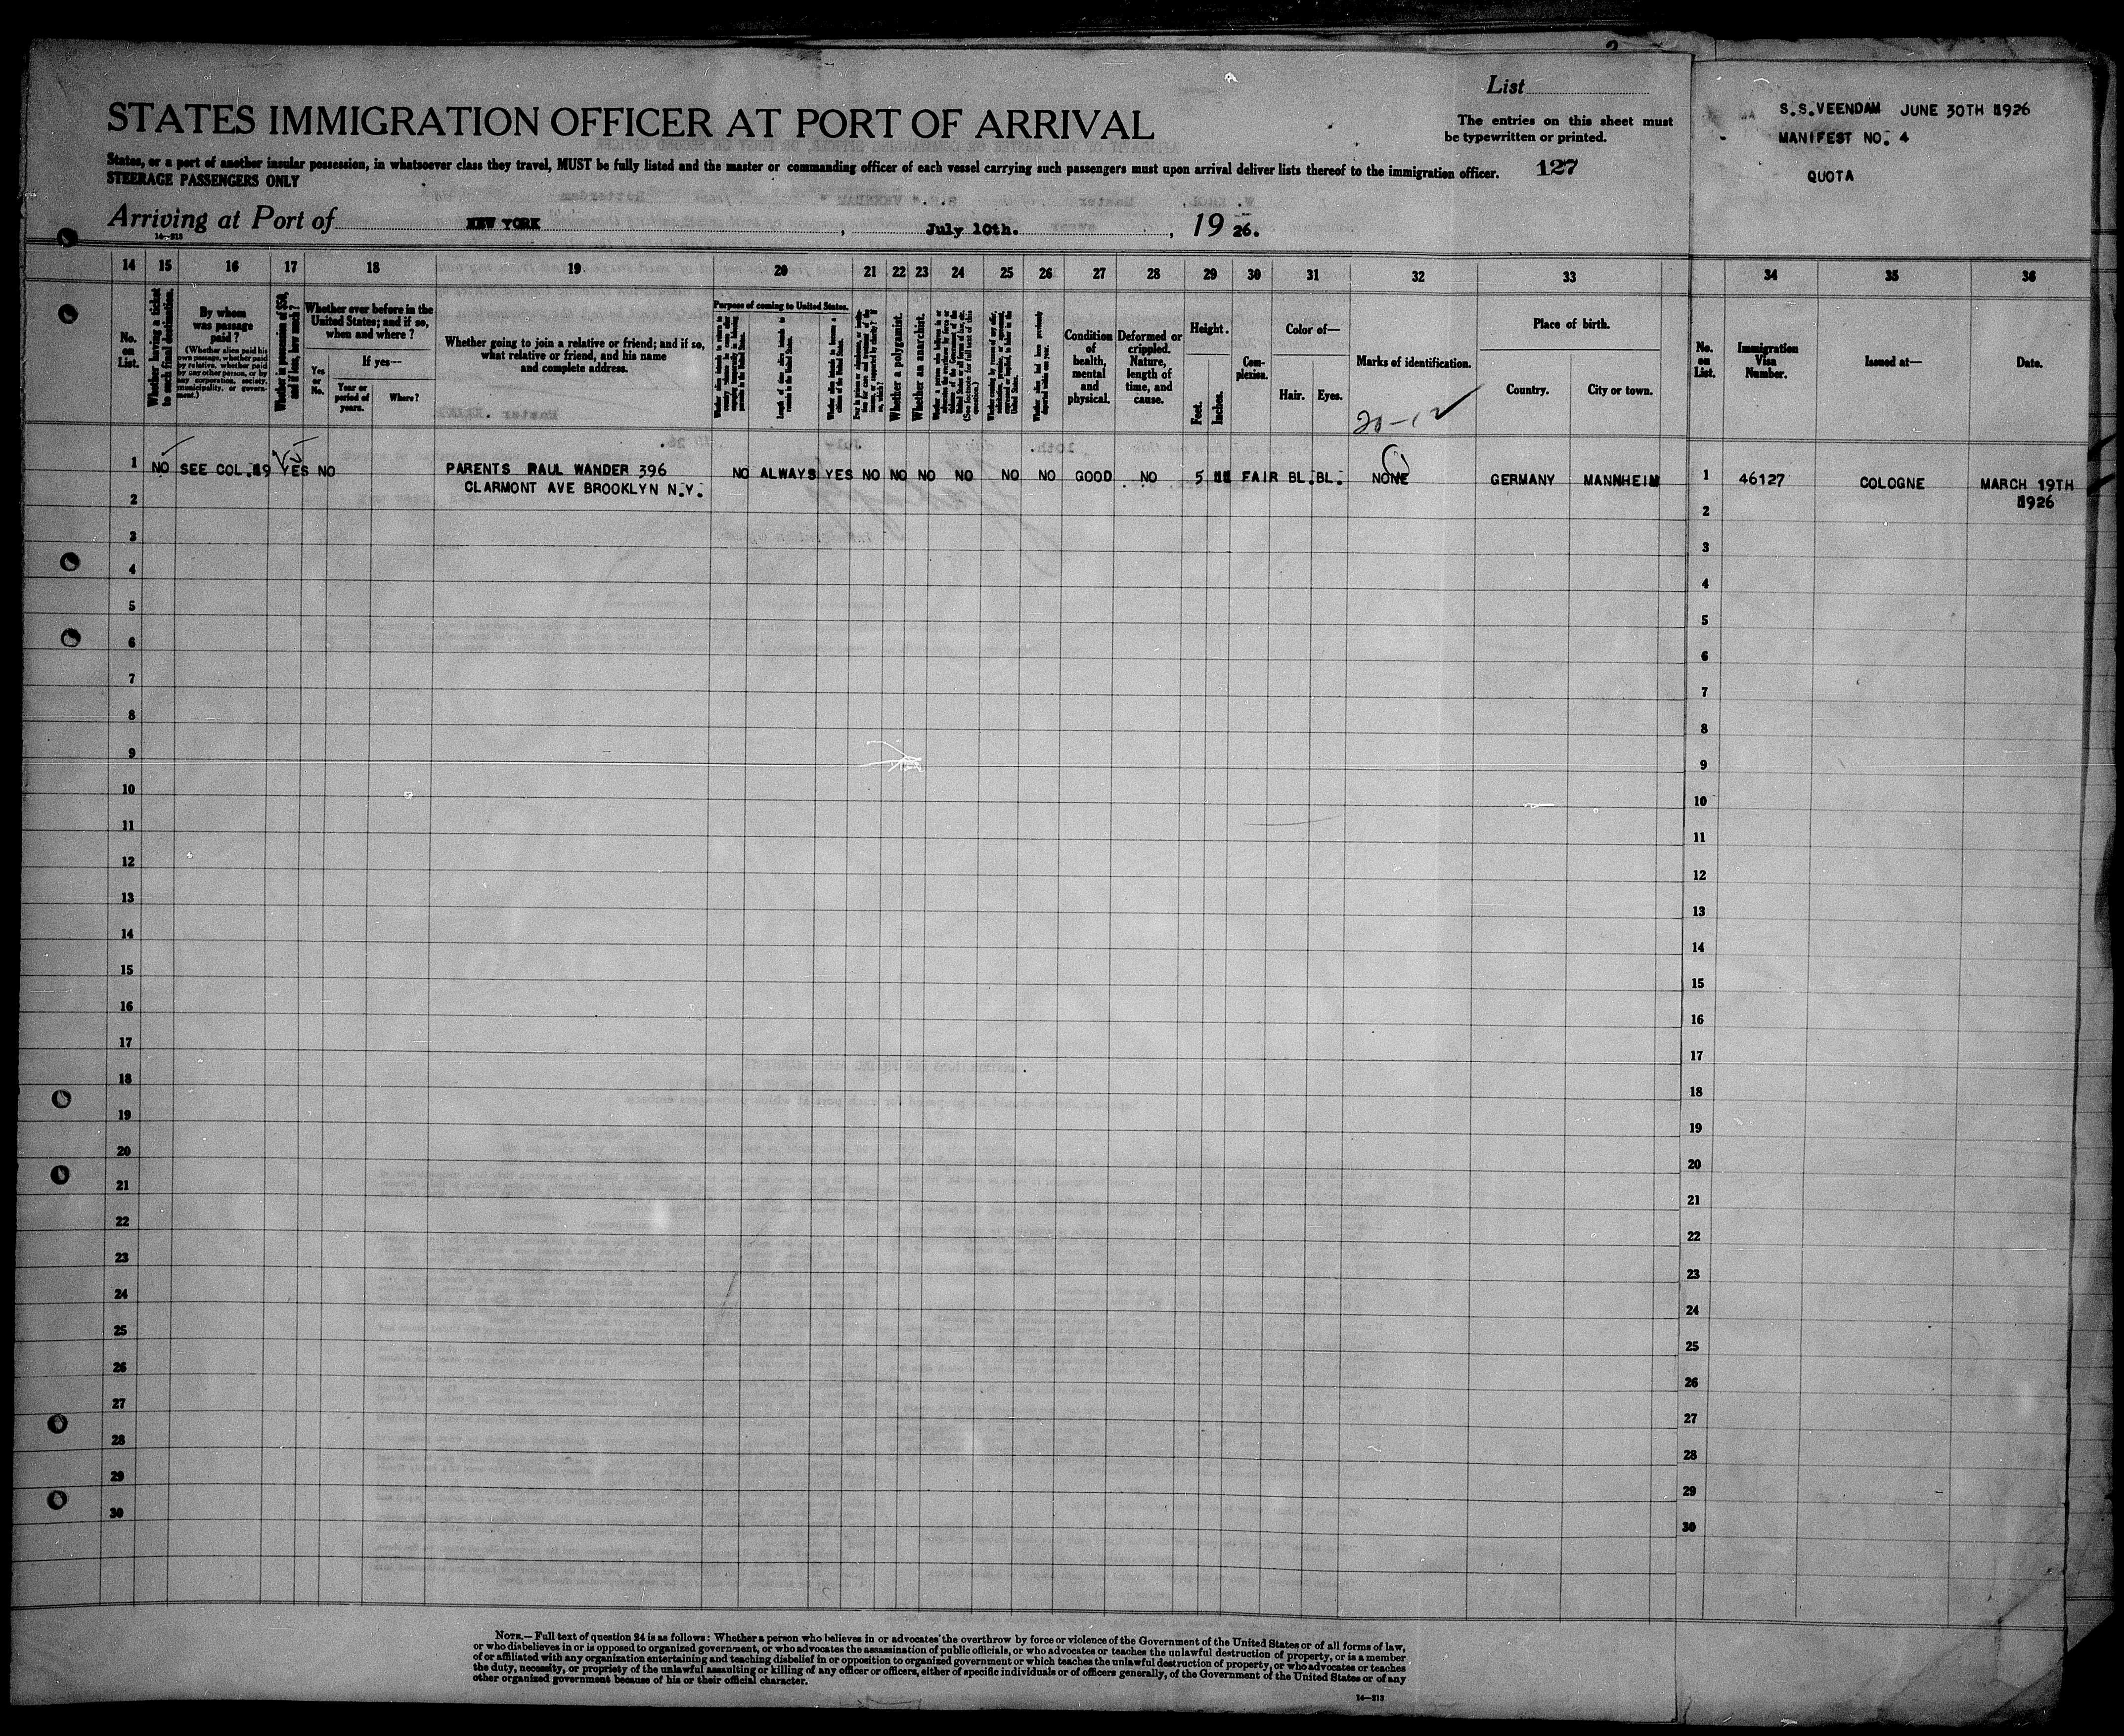 List
STATES IMMIGRATION OFFICER AT PORT OF ARRIVAL
The entries on this sheet must
be typewritten or printed.
S.S.VEENDAM JUNE 30TH 1926
MANIFEST NO. 4
QUOTA
States, or a port of another insular possession, in whatsoever class they travel, MUST be fully listed and the master or commanding officer of each vessel carrying such passengers must upon arrival deliver lists thereof to the immigration officer.
127
STEERAGE PASSENGERS ONLY
Arriving at Port of NEW YORK, July 10th., 19 26.
14—213
14 15 16 17 18 19 20 21 22 23 24 25 26 27 28 29 30 31 32 33 34 35 36
No. on List.
Whether having a ticket to such final destination.
By whom was passage paid?
(Whether alien paid his own passage, whether paid by relative, whether paid by any other person, or by any corporation, society, municipality, or government.)
Whether in possession of $50, and if less, how much?
Whether ever before in the United States; and if so, when and where?
Yes or No.
If yes—
Year or period of years.
Where?
Whether going to join a relative or friend; and if so, what relative or friend, and his name and complete address.
Purpose of coming to United States.
Length of time alien intends to remain in the United States.
Whether alien intends to become a citizen of the United States.
Whether a polygamist.
Whether an anarchist.
Condition of health, mental and physical.
Deformed or crippled. Nature, length of time, and cause.
Height.
Feet.
Inches.
Complexion.
Color of—
Hair.
Eyes.
Marks of identification.
20-12
Place of birth.
Country.
City or town.
No. on List.
Immigration Visa Number.
Issued at—
Date.
1 NO SEE COL.19 YES NO PARENTS RAUL WANDER 396 NO ALWAYS YES NO NO NO NO NO NO GOOD NO 5 FAIR BL. BL. NONE GERMANY MANNHEIM 1 46127 COLOGNE MARCH 19TH
CLARMONT AVE BROOKLYN N.Y. 1926
2 2
3 3
4 4
5 5
6 6
7 7
8 8
9 9
10 10
11 11
12 12
13 13
14 14
15 15
16 16
17 17
18 18
19 19
20 20
21 21
22 22
23 23
24 24
25 25
26 26
27 27
28 28
29 29
30 30
NOTE.—Full text of question 24 is as follows: Whether a person who believes in or advocates the overthrow by force or violence of the Government of the United States or of all forms of law,
or who disbelieves in or is opposed to organized government, or who advocates the assassination of public officials, or who advocates or teaches the unlawful destruction of property, or is a member
of or affiliated with any organization entertaining and teaching disbelief in or opposition to organized government or which teaches the unlawful destruction of property, or who advocates or teaches
the duty, necessity, or propriety of the unlawful assaulting or killing of any officer or officers, either of specific individuals or of officers generally, of the Government of the United States or of any
other organized government because of his or their official character.
14—213